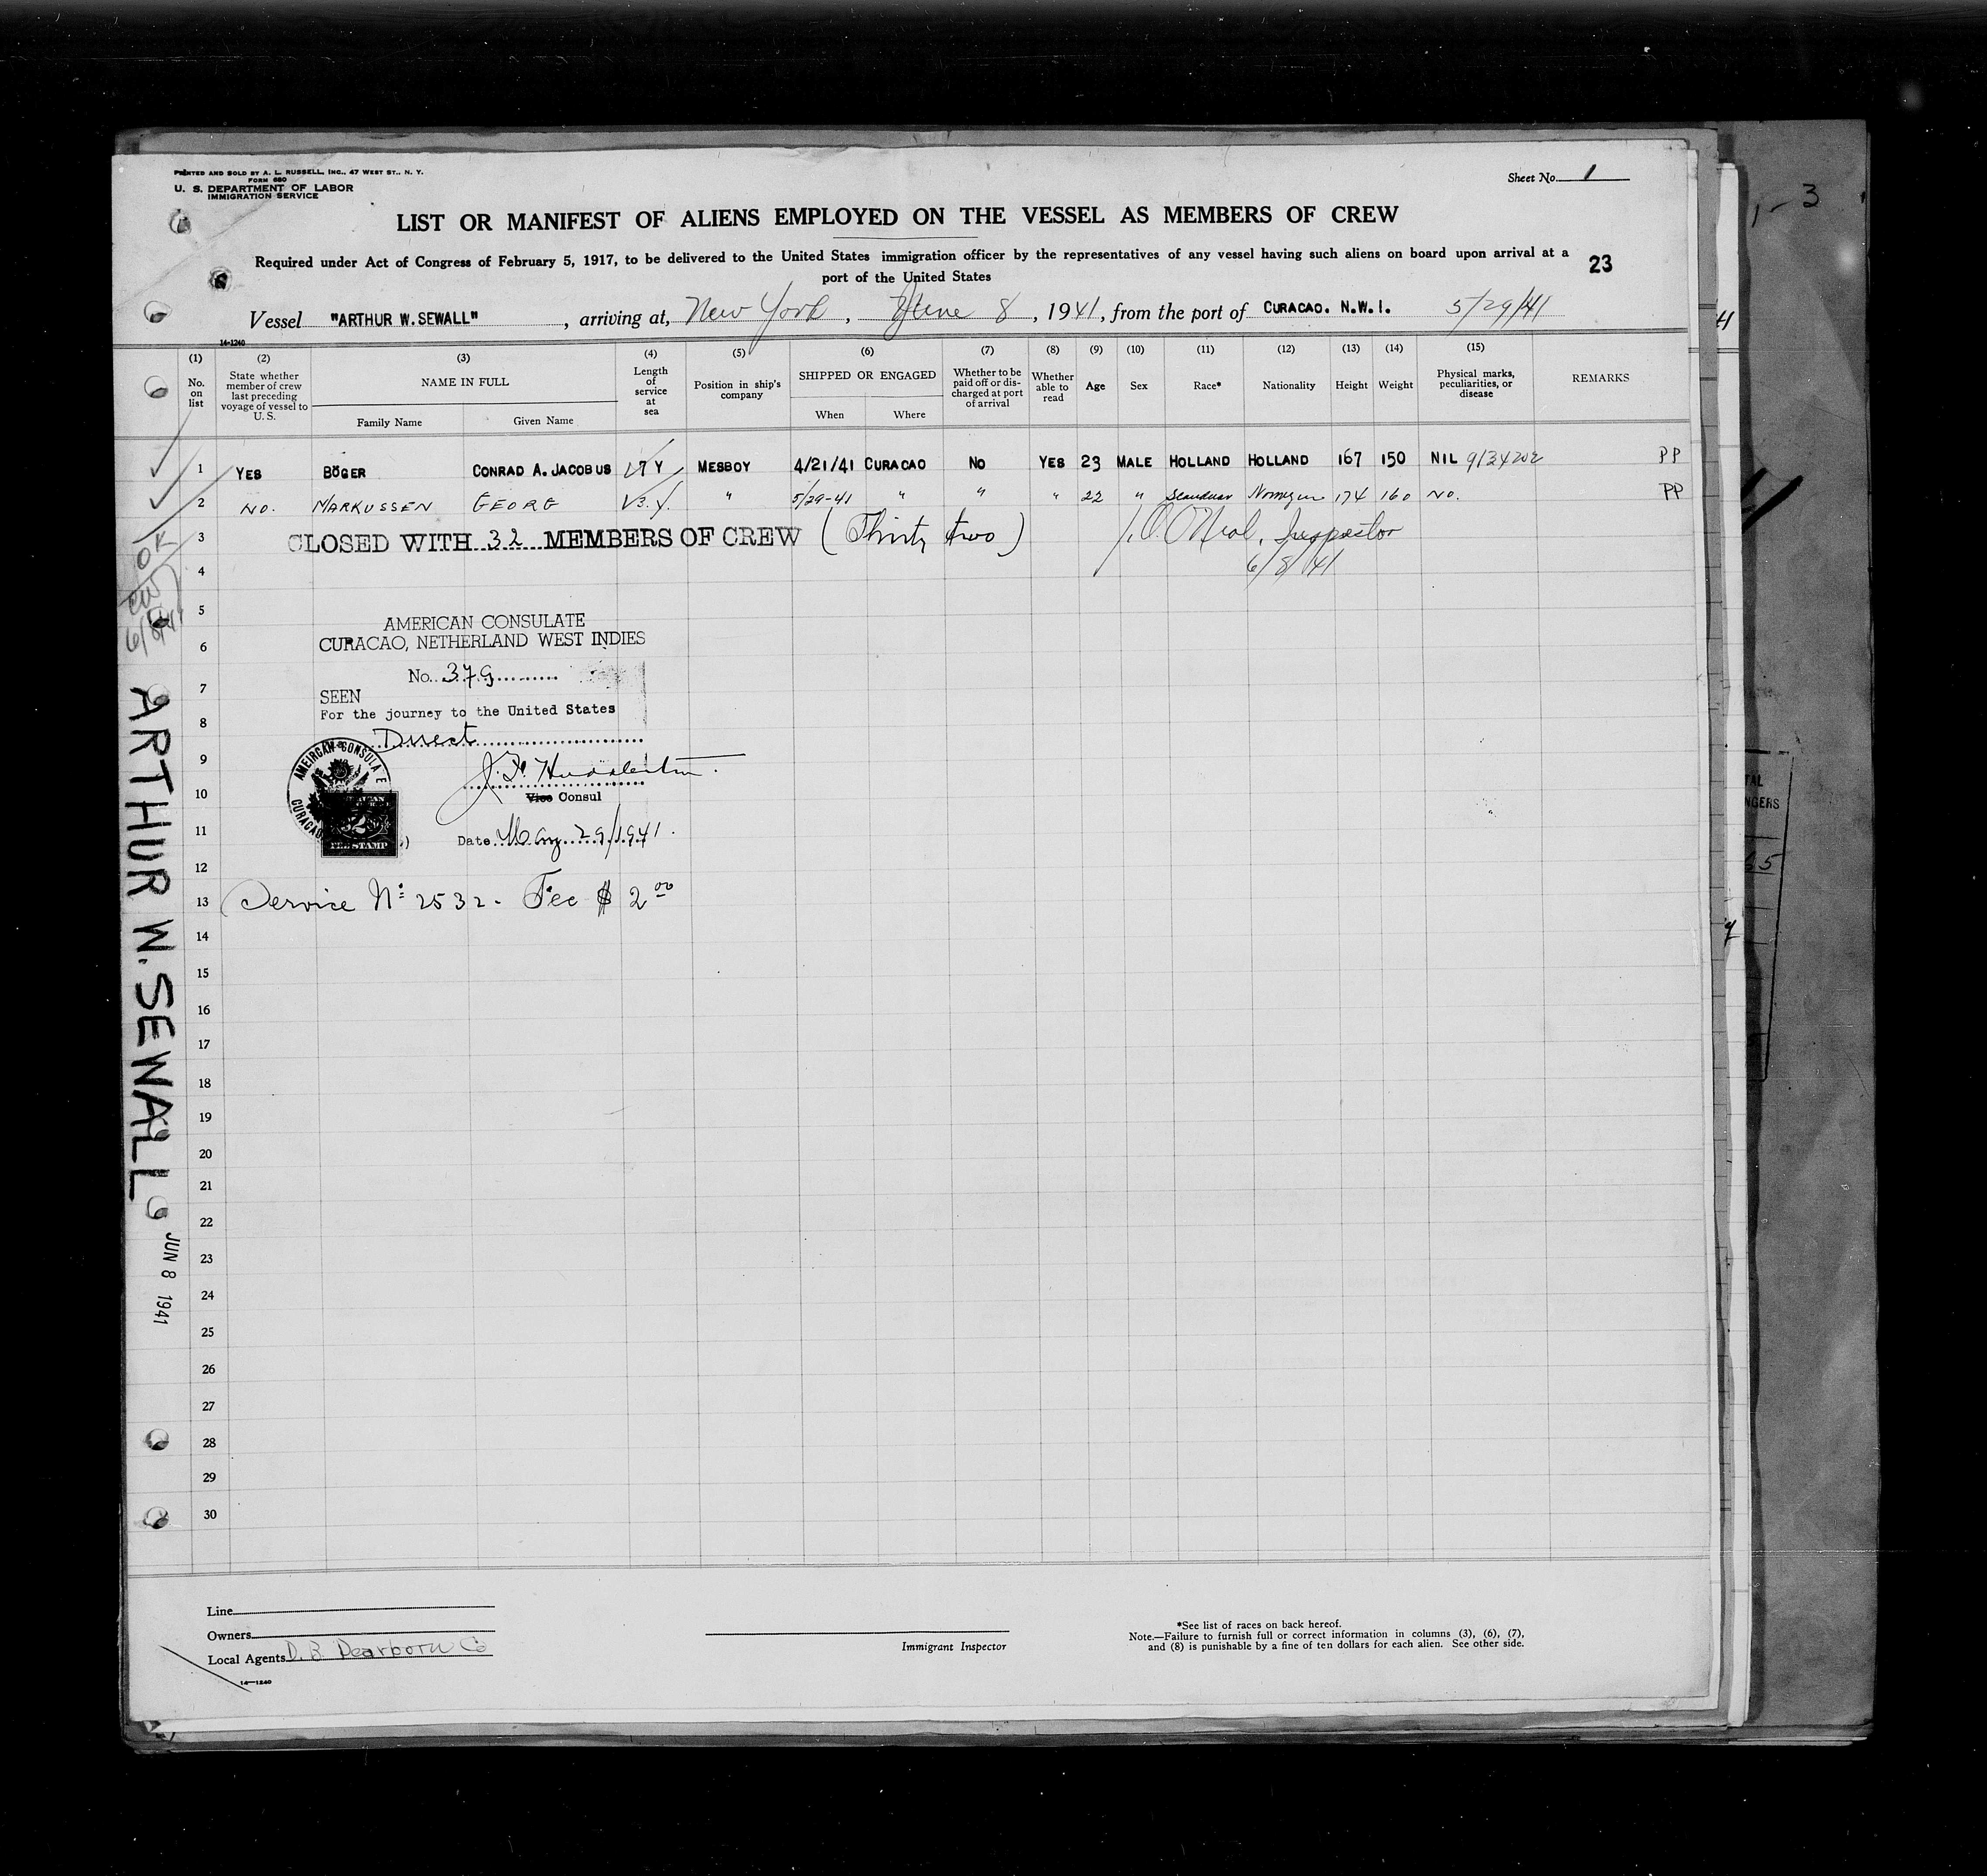 PRINTED AND SOLD BY A. L. RUSSELL, INC., 47 WEST ST., N. Y.
FORM 680
U. S. DEPARTMENT OF LABOR
IMMIGRATION SERVICE
Sheet No. 1
LIST OR MANIFEST OF ALIENS EMPLOYED ON THE VESSEL AS MEMBERS OF CREW
Required under Act of Congress of February 5, 1917, to be delivered to the United States immigration officer by the representatives of any vessel having such aliens on board upon arrival at a
port of the United States
23
Vessel "ARTHUR W. SEWALL", arriving at, New York, June 8, 1941, from the port of CURACAO. N.W.I. 5/29/41
14-1240
(1) (2) (3) (4) (5) (6) (7) (8) (9) (10) (11) (12) (13) (14) (15)
No. on list
State whether member of crew last preceding voyage of vessel to U. S.
NAME IN FULL
Family Name Given Name
Length of service at sea
Position in ship's company
SHIPPED OR ENGAGED
When Where
Whether to be paid off or discharged at port of arrival
Whether able to read
Age
Sex
Race*
Nationality
Height
Weight
Physical marks, peculiarities, or disease
REMARKS
1 YES BÖGER CONRAD A. JACOBUS 7 Y MESBOY 4/21/41 CURACAO NO YES 23 MALE HOLLAND HOLLAND 167 150 NIL 9134202 PP
2 NO. MARKUSSEN GEORG 3.Y. " 5/29-41 " " " 22 " Norwegian 174 160 NO. PP
3 CLOSED WITH 32 MEMBERS OF CREW (Thirty two) O'Neal, Inspector
4 6/8/41
5
AMERICAN CONSULATE
6 CURACAO, NETHERLAND WEST INDIES
No. 379
7 SEEN
8 For the journey to the United States
Direct
9
10 Vice Consul
11 Date May 29/1941.
AMERICAN CONSULATE
CURACAO
FEE STAMP
12
13 Service No 2532. Fee $ 2 00
14
15
16
17
18
19
20
21
22
23
24
25
26
27
28
29
30
OK
6/8/41
ARTHUR W. SEWALL
JUN 8 1941
Line
Owners
Local Agents D. B. Dearborn Co
14-1240
Immigrant Inspector
*See list of races on back hereof.
Note.—Failure to furnish full or correct information in columns (3), (6), (7),
and (8) is punishable by a fine of ten dollars for each alien. See other side.
1- 3